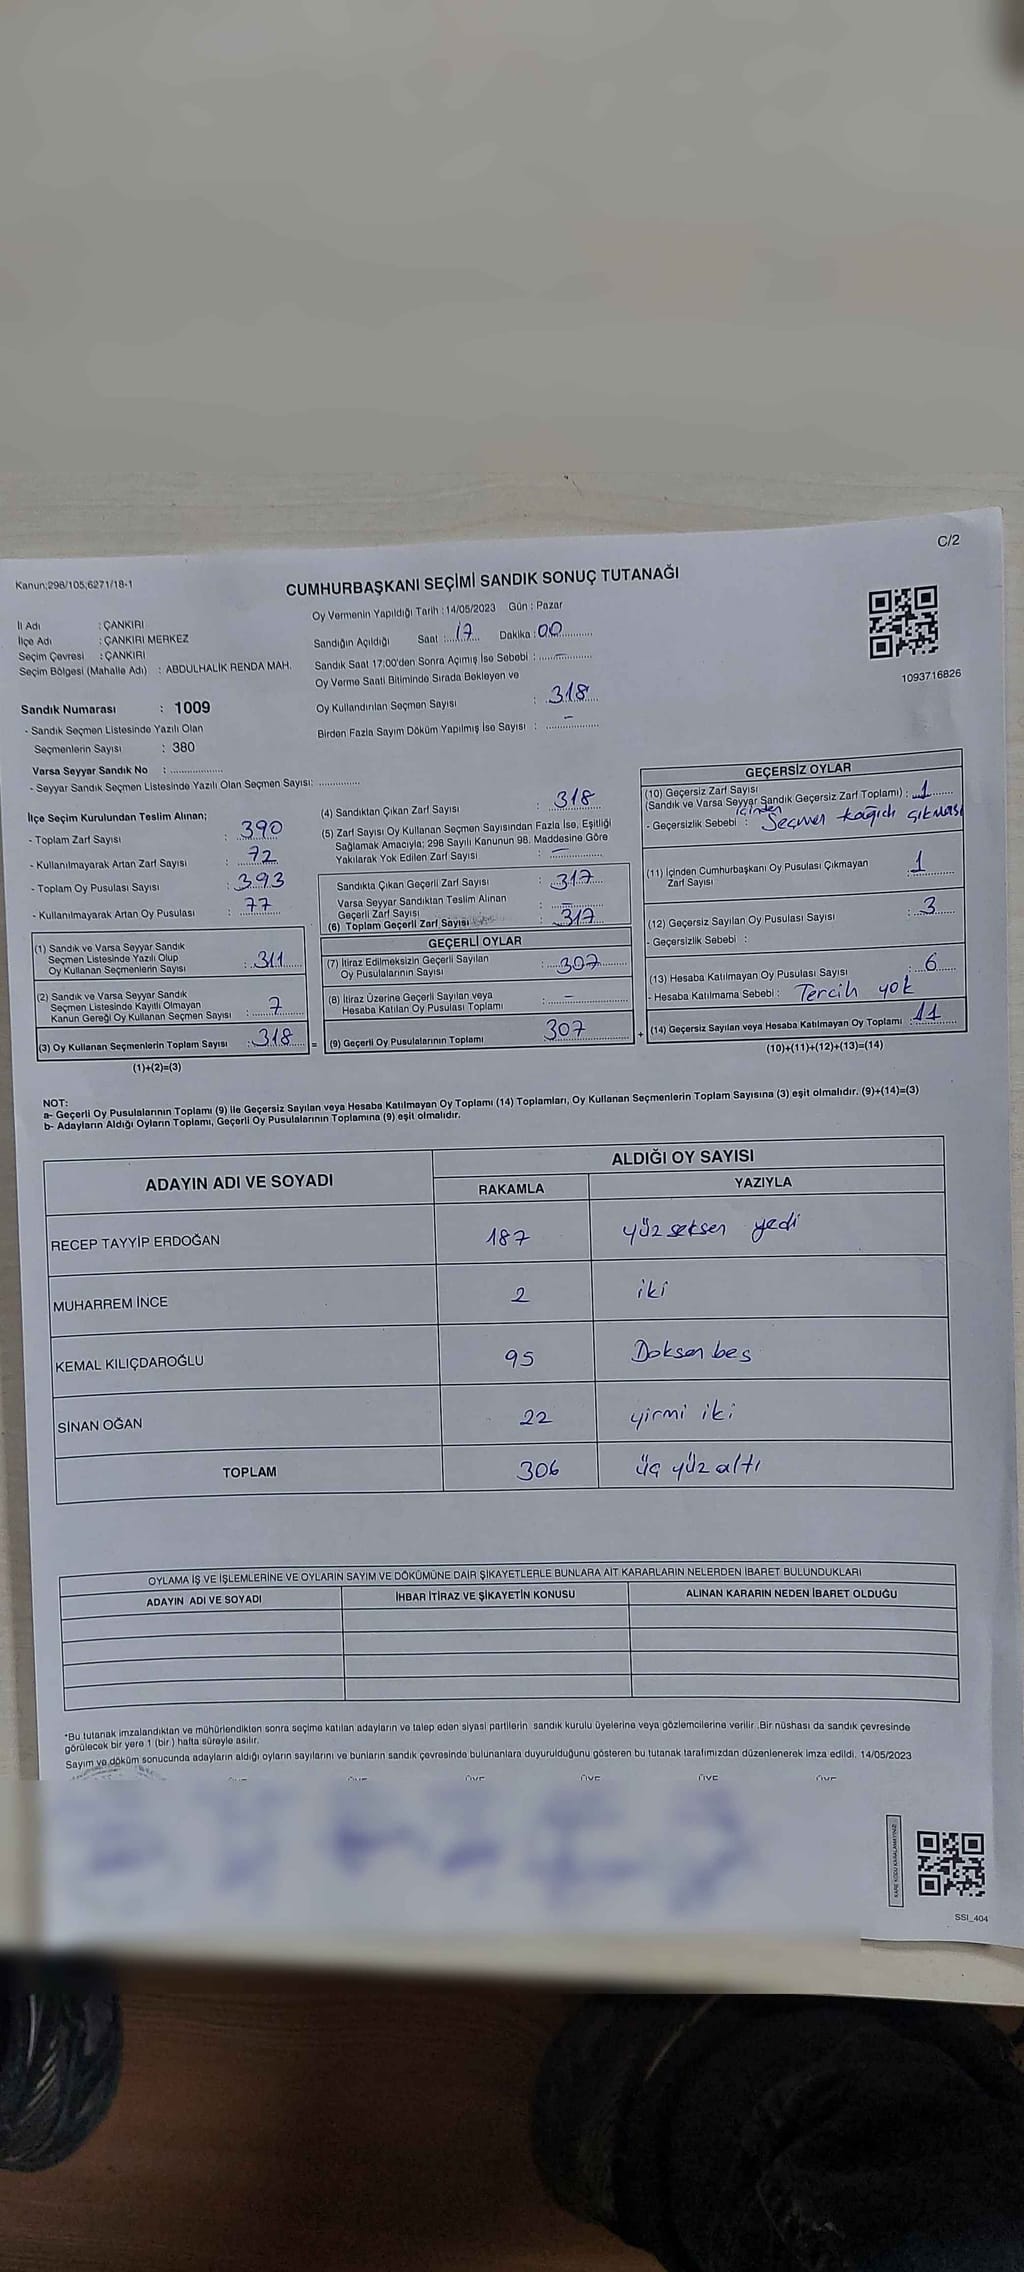 C/2
Kanun;298/105;6271/18-1
CUMHURBAŞKANI SEÇİMİ SANDIK SONUÇ TUTANAĞI
İl Adı : ÇANKIRI
İlçe Adı : ÇANKIRI MERKEZ
Seçim Çevresi : ÇANKIRI
Seçim Bölgesi (Mahalle Adı) : ABDULHALİK RENDA MAH.
Sandık Numarası : 1009
- Sandık Seçmen Listesinde Yazılı Olan
Seçmenlerin Sayısı : 380
Varsa Seyyar Sandık No : ..................
- Seyyar Sandık Seçmen Listesinde Yazılı Olan Seçmen Sayısı: .............
Oy Vermenin Yapıldığı Tarih : 14/05/2023 Gün : Pazar
Sandığın Açıldığı Saat : 17 Dakika : 00
Sandık Saat 17:00'den Sonra Açımış İse Sebebi : –
Oy Verme Saati Bitiminde Sırada Bekleyen ve
Oy Kullandırılan Seçmen Sayısı : 318
Birden Fazla Sayım Döküm Yapılmış İse Sayısı : –
1093716826
İlçe Seçim Kurulundan Teslim Alınan;
- Toplam Zarf Sayısı : 390
- Kullanılmayarak Artan Zarf Sayısı : 72
- Toplam Oy Pusulası Sayısı : 393
- Kullanılmayarak Artan Oy Pusulası : 77
(1) Sandık ve Varsa Seyyar Sandık
Seçmen Listesinde Yazılı Olup
Oy Kullanan Seçmenlerin Sayısı : 311
(2) Sandık ve Varsa Seyyar Sandık
Seçmen Listesinde Kayıtlı Olmayan
Kanun Gereği Oy Kullanan Seçmen Sayısı : 7
(3) Oy Kullanan Seçmenlerin Toplam Sayısı : 318
(1)+(2)=(3)
(4) Sandıktan Çıkan Zarf Sayısı : 318
(5) Zarf Sayısı Oy Kullanan Seçmen Sayısından Fazla İse, Eşitliği
Sağlamak Amacıyla; 298 Sayılı Kanunun 98. Maddesine Göre
Yakılarak Yok Edilen Zarf Sayısı : –
Sandıkta Çıkan Geçerli Zarf Sayısı : 317
Varsa Seyyar Sandıktan Teslim Alınan
Geçerli Zarf Sayısı : –
(6) Toplam Geçerli Zarf Sayısı 317
GEÇERLİ OYLAR
(7) İtiraz Edilmeksizin Geçerli Sayılan
Oy Pusulalarının Sayısı : 307
(8) İtiraz Üzerine Geçerli Sayılan veya
Hesaba Katılan Oy Pusulası Toplamı : –
= (9) Geçerli Oy Pusulalarının Toplamı 307 +
GEÇERSİZ OYLAR
(10) Geçersiz Zarf Sayısı
(Sandık ve Varsa Seyyar Sandık Geçersiz Zarf Toplamı) : 1
- Geçersizlik Sebebi : içinden Seçmen kağıdı çıkması
(11) İçinden Cumhurbaşkanı Oy Pusulası Çıkmayan
Zarf Sayısı : 1
(12) Geçersiz Sayılan Oy Pusulası Sayısı : 3
- Geçersizlik Sebebi :
(13) Hesaba Katılmayan Oy Pusulası Sayısı : 6
- Hesaba Katılmama Sebebi : Tercih yok
(14) Geçersiz Sayılan veya Hesaba Katılmayan Oy Toplamı : 11
(10)+(11)+(12)+(13)=(14)
NOT:
a- Geçerli Oy Pusulalarının Toplamı (9) ile Geçersiz Sayılan veya Hesaba Katılmayan Oy Toplamı (14) Toplamları, Oy Kullanan Seçmenlerin Toplam Sayısına (3) eşit olmalıdır. (9)+(14)=(3)
b- Adayların Aldığı Oyların Toplamı, Geçerli Oy Pusulalarının Toplamına (9) eşit olmalıdır.
ADAYIN ADI VE SOYADI ALDIĞI OY SAYISI
RAKAMLA YAZIYLA
RECEP TAYYİP ERDOĞAN 187 yüz seksen yedi
MUHARREM İNCE 2 iki
KEMAL KILIÇDAROĞLU 95 Doksan beş
SİNAN OĞAN 22 yirmi iki
TOPLAM 306 üç yüz altı
OYLAMA İŞ VE İŞLEMLERİNE VE OYLARIN SAYIM VE DÖKÜMÜNE DAİR ŞİKAYETLERLE BUNLARA AİT KARARLARIN NELERDEN İBARET BULUNDUKLARI
ADAYIN ADI VE SOYADI İHBAR İTİRAZ VE ŞİKAYETİN KONUSU ALINAN KARARIN NEDEN İBARET OLDUĞU
*Bu tutanak imzalandıktan ve mühürlendikten sonra seçime katılan adayların ve talep eden siyasi partilerin sandık kurulu üyelerine veya gözlemcilerine verilir .Bir nüshası da sandık çevresinde
görülecek bir yere 1 (bir ) hafta süreyle asılır.
Sayım ve döküm sonucunda adayların aldığı oyların sayılarını ve bunların sandık çevresinde bulunanlara duyurulduğunu gösteren bu tutanak tarafımızdan düzenlenerek imza edildi. 14/05/2023
ÜYE ÜYE ÜYE ÜYE
KARE KODU KARALAMAYINIZ!
SSI_404